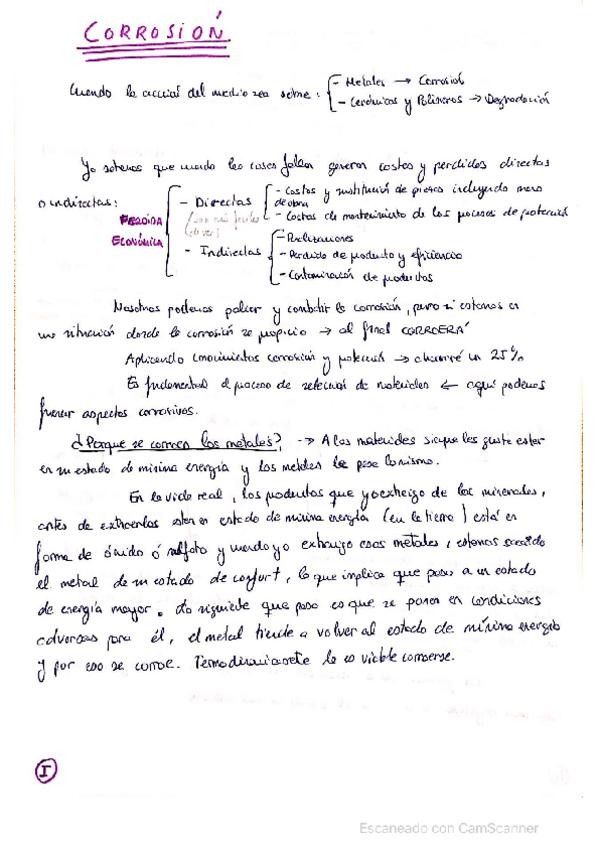 CORROSIÓN
Cuando la acción del medio sea sobre: - Metales → Corrosión
- Cerámicos y Polímeros → Degradación
Yo sabemos que cuando las cosas fallan generan costos y perdidas directas
o indirectas:
PERDIDA
ECONÓMICA
- Directas
- Costos y sustitución de piezas incluyendo mano
de obra
- Costos de mantenimiento de los procesos de protección
- Indirectas
- Paralizaciones
- Perdida de producto y eficiencia
- Contaminación de productos
Nosotros podemos paliar y combatir la corrosión, pero si estamos en
una situación donde la corrosión se propicia → al final CORROERÁ
Aplicando conocimientos corrosión y protección → ahorré un 25%
Es fundamental el proceso de selección de materiales ← aquí podemos
frenar aspectos corrosivos.
¿Porque se corroen los metales? → A los materiales siempre les gusta estar
en su estado de mínima energía y los metales le pasa lo mismo.
En la vida real, los productos que yo extraigo de los minerales,
antes de extraerlos están en estado de mínima energía (en la tierra) está en
forma de óxido ó sulfato y cuando yo extraigo esos metales, estamos sacando
el metal de su estado de confort, lo que implica que pase a un estado
de energía mayor. Lo siguiente que pasa es que se ponen en condiciones
adversas para él, el metal tiende a volver al estado de mínima energía
y por eso se corroe. Termodinamicamente le es viable corroerse.
I
Escaneado con CamScanner